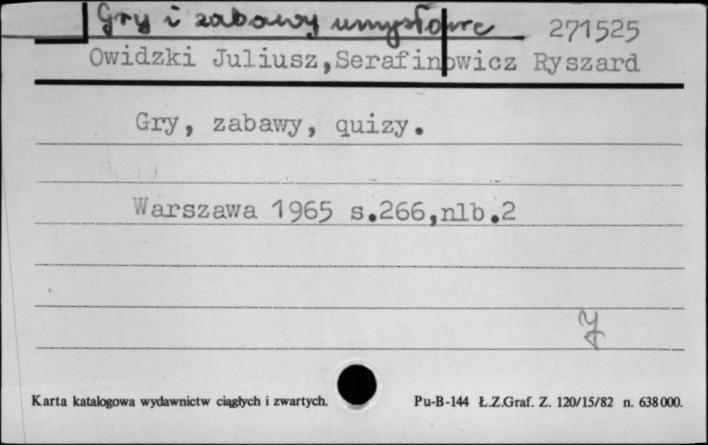 Gry i zabawy umysłowe 271525
Owidzki Juliusz,Serafinowicz Ryszard
Gry, zabawy, quizy.
Warszawa 1965 s.266,nlb.2
Karta katalogowa wydawnictw ciągłych i zwartych. Pu-B-144 Ł.Z.Graf. Z. 120/15/82 n. 638000.